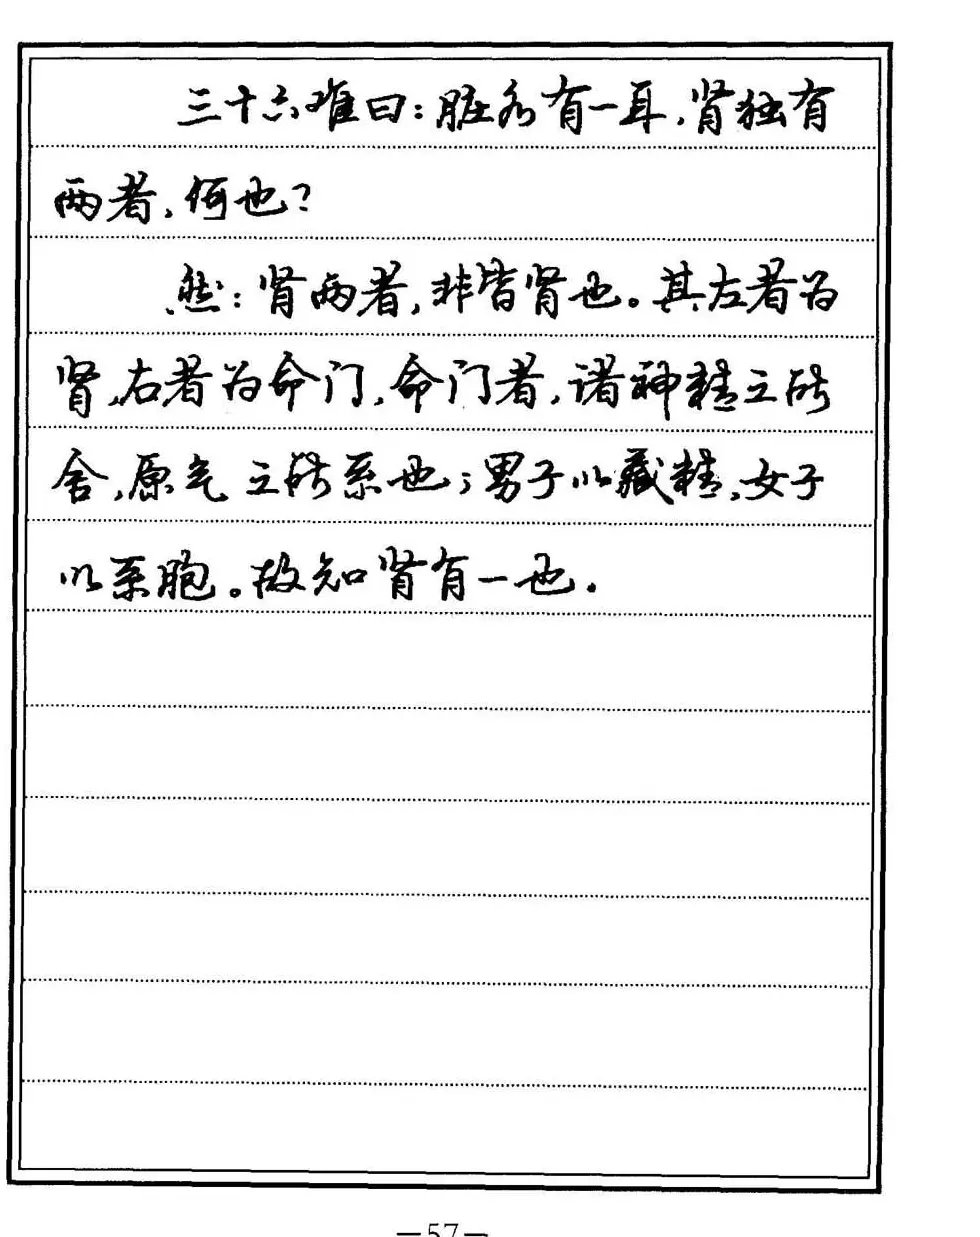 三十六难曰：脏各有一耳，肾独有
两者，何也？
然：肾两者，非皆肾也。其左者为
肾，右者为命门，命门者，诸神精之所
舍，原气之所系也；男子以藏精，女子
以系胞。故知肾有一也．
—57—